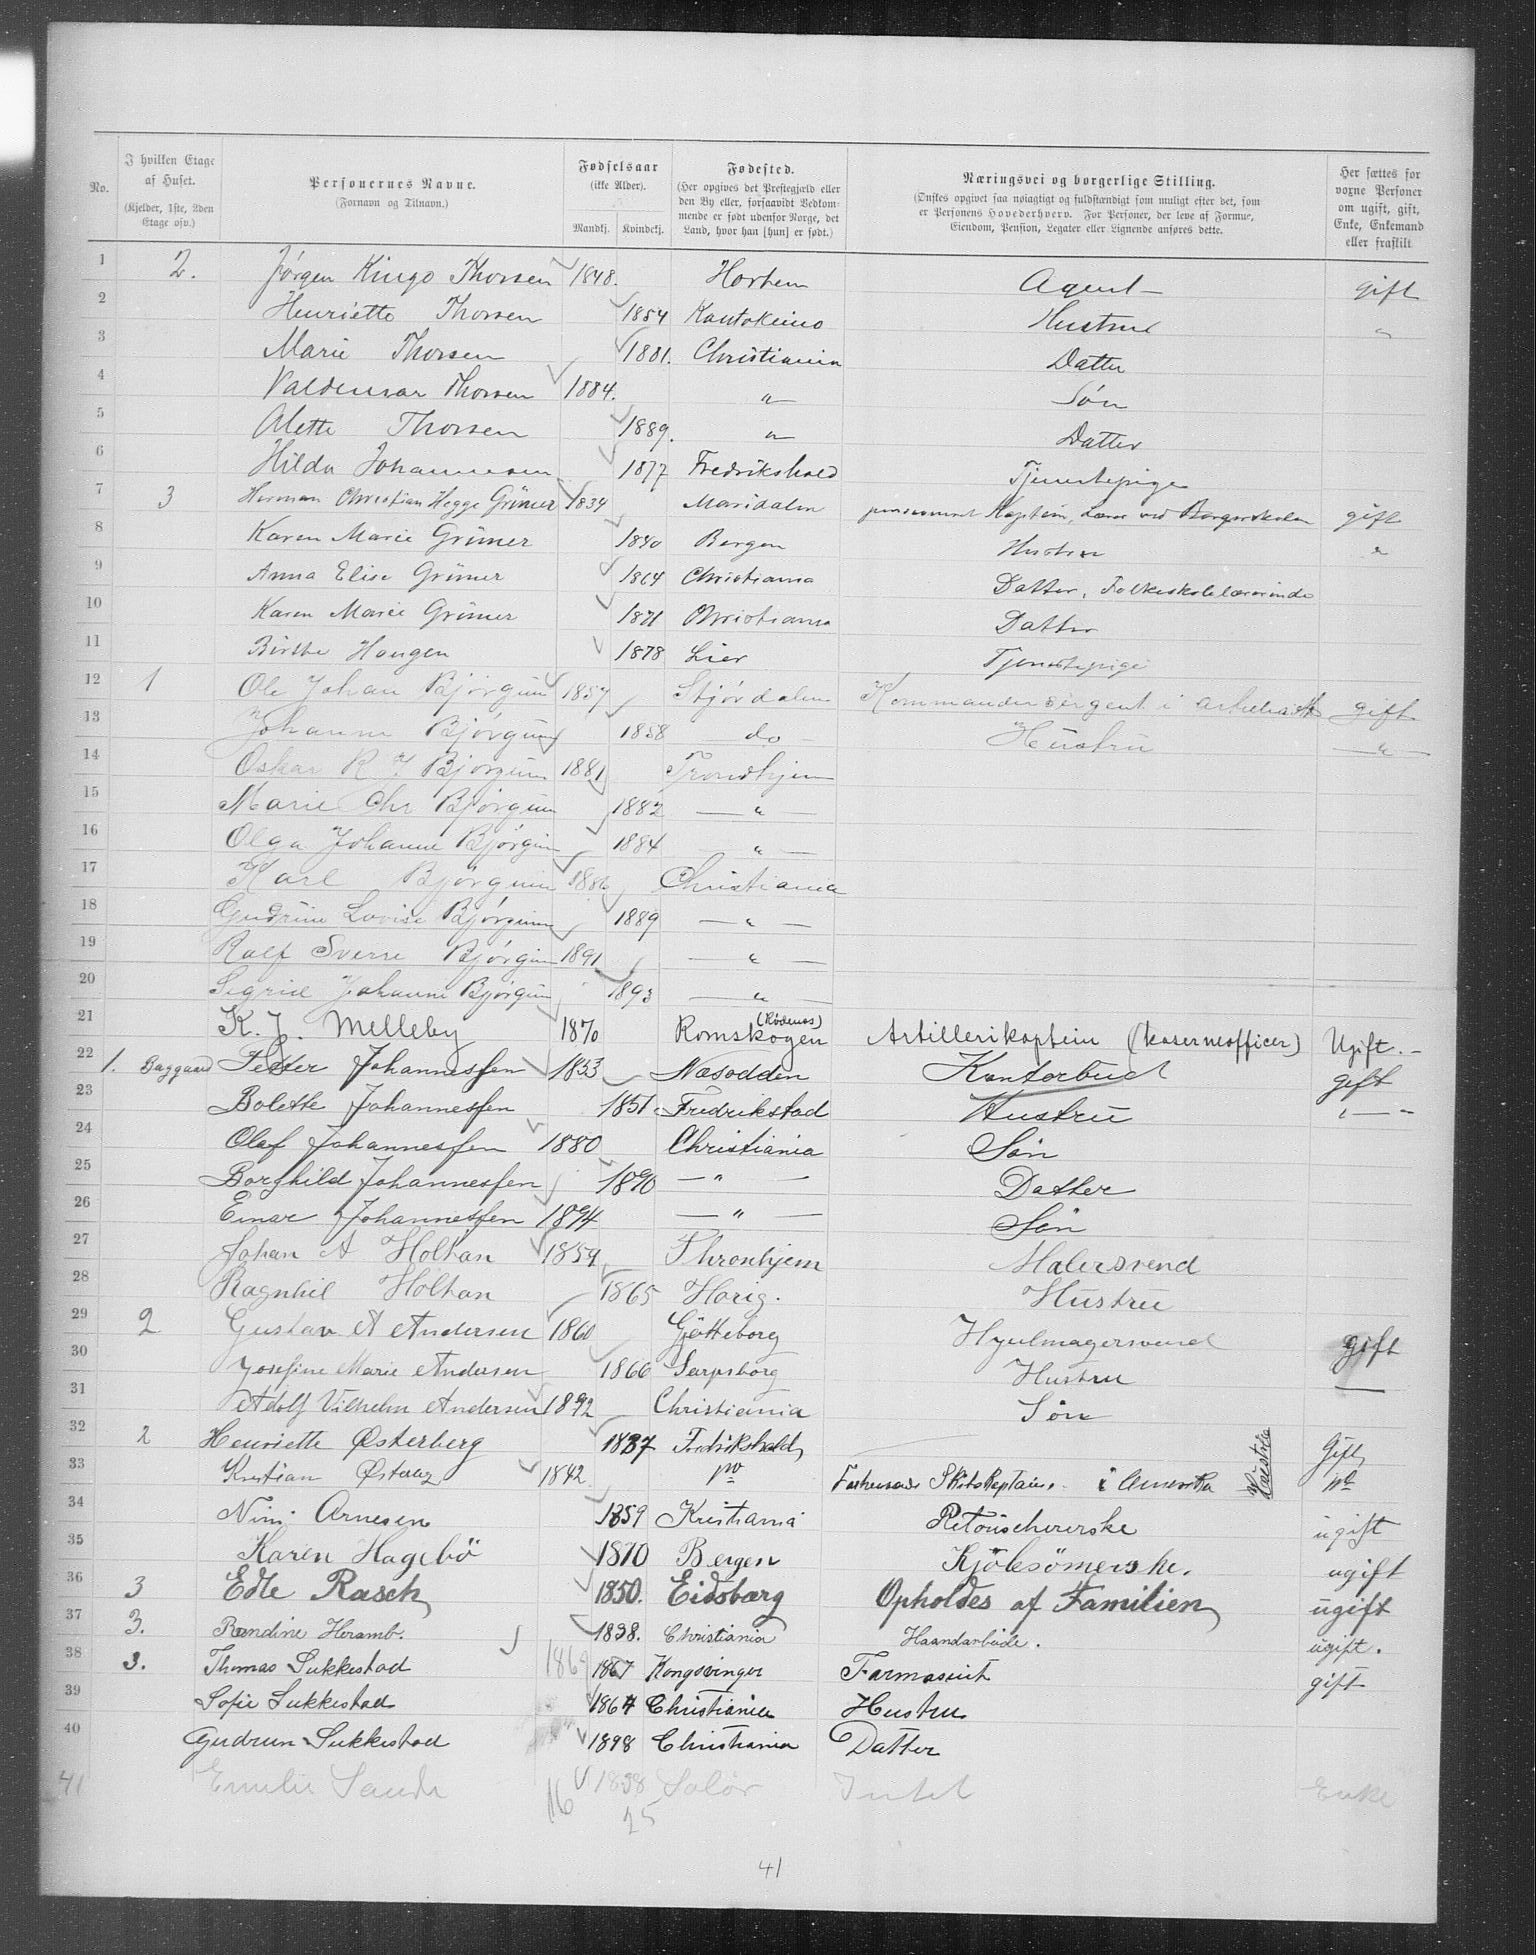 No. | I hvilken Etage af Huset. (Kjelder, 1ste, 2den Etage osv.) | Personernes Navne. (Fornavn og Tilnavn.) | Fødselsaar (ikke Alder). Mandkj. Kvindekj. | Fødested. (Her opgives det Prestegjæld eller den By eller, forsaavidt Vedkommende er født udenfor Norge, det Land, hvor han [hun] er født.) | Næringsvei og borgerlige Stilling. (Ønskes opgivet saa nøiagtigt og fuldstændigt som muligt efter det, som er Personens Hovederhverv. For Personer, der leve af Formue, Eiendom, Pension, Legater eller Lignende anføres dette. | Her sættes for voxne Personer om ugift, gift, Enke, Enkemand eller fraskilt
1 2. Jørgen Kingo Thorsen 1848. Horten Agent — gift
2 Henriette Thorsen 1854 Kautokeino Hustru "
3 Marie Thorsen 1881. Christiania Datter
4 Valdemar Thorsen 1884. " Søn
5 Alette Thorsen 1889. " Datter
6 Hilda Johannesen 1877 Fredrikshald Tjenestepige
7 3 Herman Christian Hegge Grüner 1834 Maridalen pensioneret Kaptein, Lærer ved Borgerskolen gift
8 Karen Marie Grüner 1840 Bergen Hustru "
9 Anna Elise Grüner 1864 Christiania Datter, Folkeskolelærerinde
10 Karen Marie Grüner 1871 Christiania Datter
11 Birthe Haugen 1878 Lier Tjenestepige
12 1 Ole Johan Bjørgum 1857 Stjørdalen Kommandersergent i gift
13 Johanne Bjørgum 1858 do Hustru — " —
14 Oskar R J Bjørgum 1881 Trondhjem
15 Marie Chr Bjørgum 1882 — " —
16 Olga Johanne Bjørgum 1884 — " —
17 Karl Bjørgum 1886 Christiania
18 Gudrun Lovise Bjørgum 1889 — " —
19 Ralf Sverre Bjørgum 1891 — " —
20 Sigrid Johanne Bjørgum 1893 — " —
21 K. J. Melleby 1870 Romskogen (Rødenes) Artillerikaptein (kaserneofficer) Ugift. —
22 1. Baggaard Petter Johannessen 1853 Næsodden Kontorbud gift
23 Bolette Johannessen 1851 Fredrikstad Hustru — " —
24 Olaf Johannessen 1880 Christiania Søn
25 Borghild Johannessen 1890 — " — Datter
26 Einar Johannessen 1894 — " — Søn
27 Johan A Holtan 1859 Thronhjem Malersvend
28 Ragnhil Holtan 1865 Horig. Hustru
29 2 Gustav A Andersen 1860 Gjøtteborg Hjulmagersvend gift
30 Josefine Marie Andersen 1866 Sarpsborg Hustru —
31 Adolf Vilhelm Andersen 1892 Christiania Søn
32 2 Henriette Østerberg 1837 Fredrikshald — Hustru Gift
33 Kristian 1842 do Skibskaptain i Amerika do
34 Arnesen 1859 Kristiania Retoucherske ugift
35 Karen Hagebö 1870 Bergen Kjölesömerske. ugift
36 3 Edle Rasch 1850. Eidsberg Opholdes af Familien ugift
37 3. Randine Heramb. 1838. Christiania Haandarbeide. ugift.
38 3. Thomas Sukkestad 1867 1867 Kongsvinger Farmaseut gift
39 Sofie Sukkestad 1864 Christiania Hustru
40 Gudrun Sukkestad 1898 Christiania Datter
41 Emilie Sande 1838 Solør Intet Enke
16 25
41